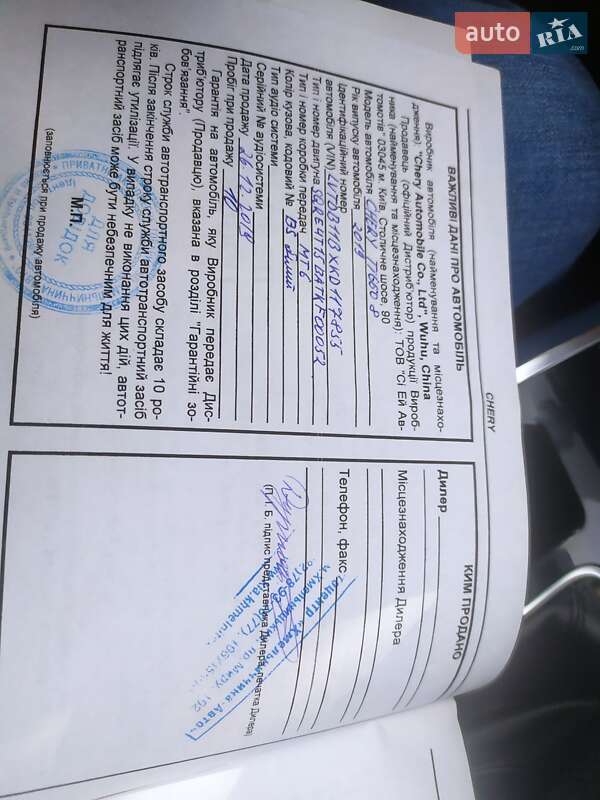 auto RIA.com
CHERY
ВАЖЛИВІ ДАНІ ПРО АВТОМОБІЛЬ
Виробник автомобіля (найменування та місцезнахо-
дження): "Chery Automobile Co., Ltd", Wuhu, China
Продавець (офіційний Дистриб'ютор) продукції Вироб-
ника (найменування та місцезнаходження): ТОВ "Сі Ей Ав-
томотів" 03045 м. Київ, Столичне шосе, 90
Модель автомобіля CHERY TIGGO 8
Рік випуску автомобіля 2019
Ідентифікаційний номер
автомобіля (VIN)
Тип і номер двигуна
Тип і номер коробки передач МТ6
Колір кузова, кодовий № B5 білий
Тип аудіо системи
Серійний № аудіосистеми
Дата продажу 26.12.2019
Пробіг при продажу 10
Гарантія на автомобіль, яку Виробник передає Дис-
триб'ютору (Продавцю), вказана в розділі "Гарантійні зо-
бов'язання".
Строк служби автотранспортного засобу складає 10 ро-
ків. Після закінчення строку служби автотранспортний засіб
підлягає утилізації. У випадку не виконання цих дій, автот-
ранспортний засіб може бути небезпечним для життя!
М.П.
(заповнюється при продажу автомобіля)
КИМ ПРОДАНО
Дилер
Місцезнаходження Дилера
Телефон, факс
(П.І. Б. підпис представника Дилера, печатка Дилера)